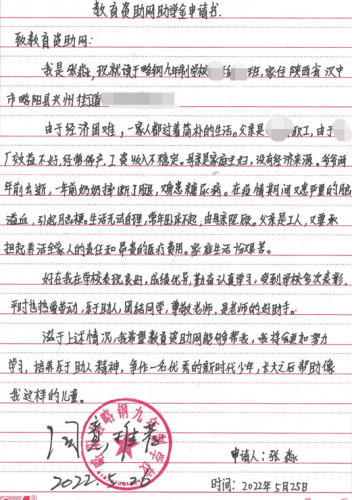 教育资助网助学金申请书.
致教育资助网:
我是张淼, 现就读于略钢九年制学校 班, 家住陕西省汉中
市略阳县兴州街道
由于经济困难, 一家人都过着简朴的生活。父亲是 职工, 由于
厂效益不好, 经常停产, 工资收入不稳定。母亲是家庭主妇, 没有经济来源。爷爷两
年前去逝, 一年前奶奶摔断了腿, 又患糖尿病。在疫情期间又患严重的脑
溢血, 引起后遗症, 生活无法自理, 常年卧床不起, 由母亲照顾。父亲是工人, 又要承
担起养活全家人的责任和昂贵的医疗费用。家庭生活十分艰苦。
好在我在学校表现良好, 成绩优异, 勤奋认真学习, 受到学校多次表彰,
平时也热爱劳动, 乐于助人, 团结同学, 尊敬老师, 是老师的好助手。
鉴于上述情况, 我希望教育资助网能够帮我, 我将会更加努力
学习, 培养乐于助人精神, 争作一名优秀的新时代少年, 长大之后帮助像
我这样的儿童。
同意推荐
2022.5.26
申请人: 张淼
时间: 2022年5月25日